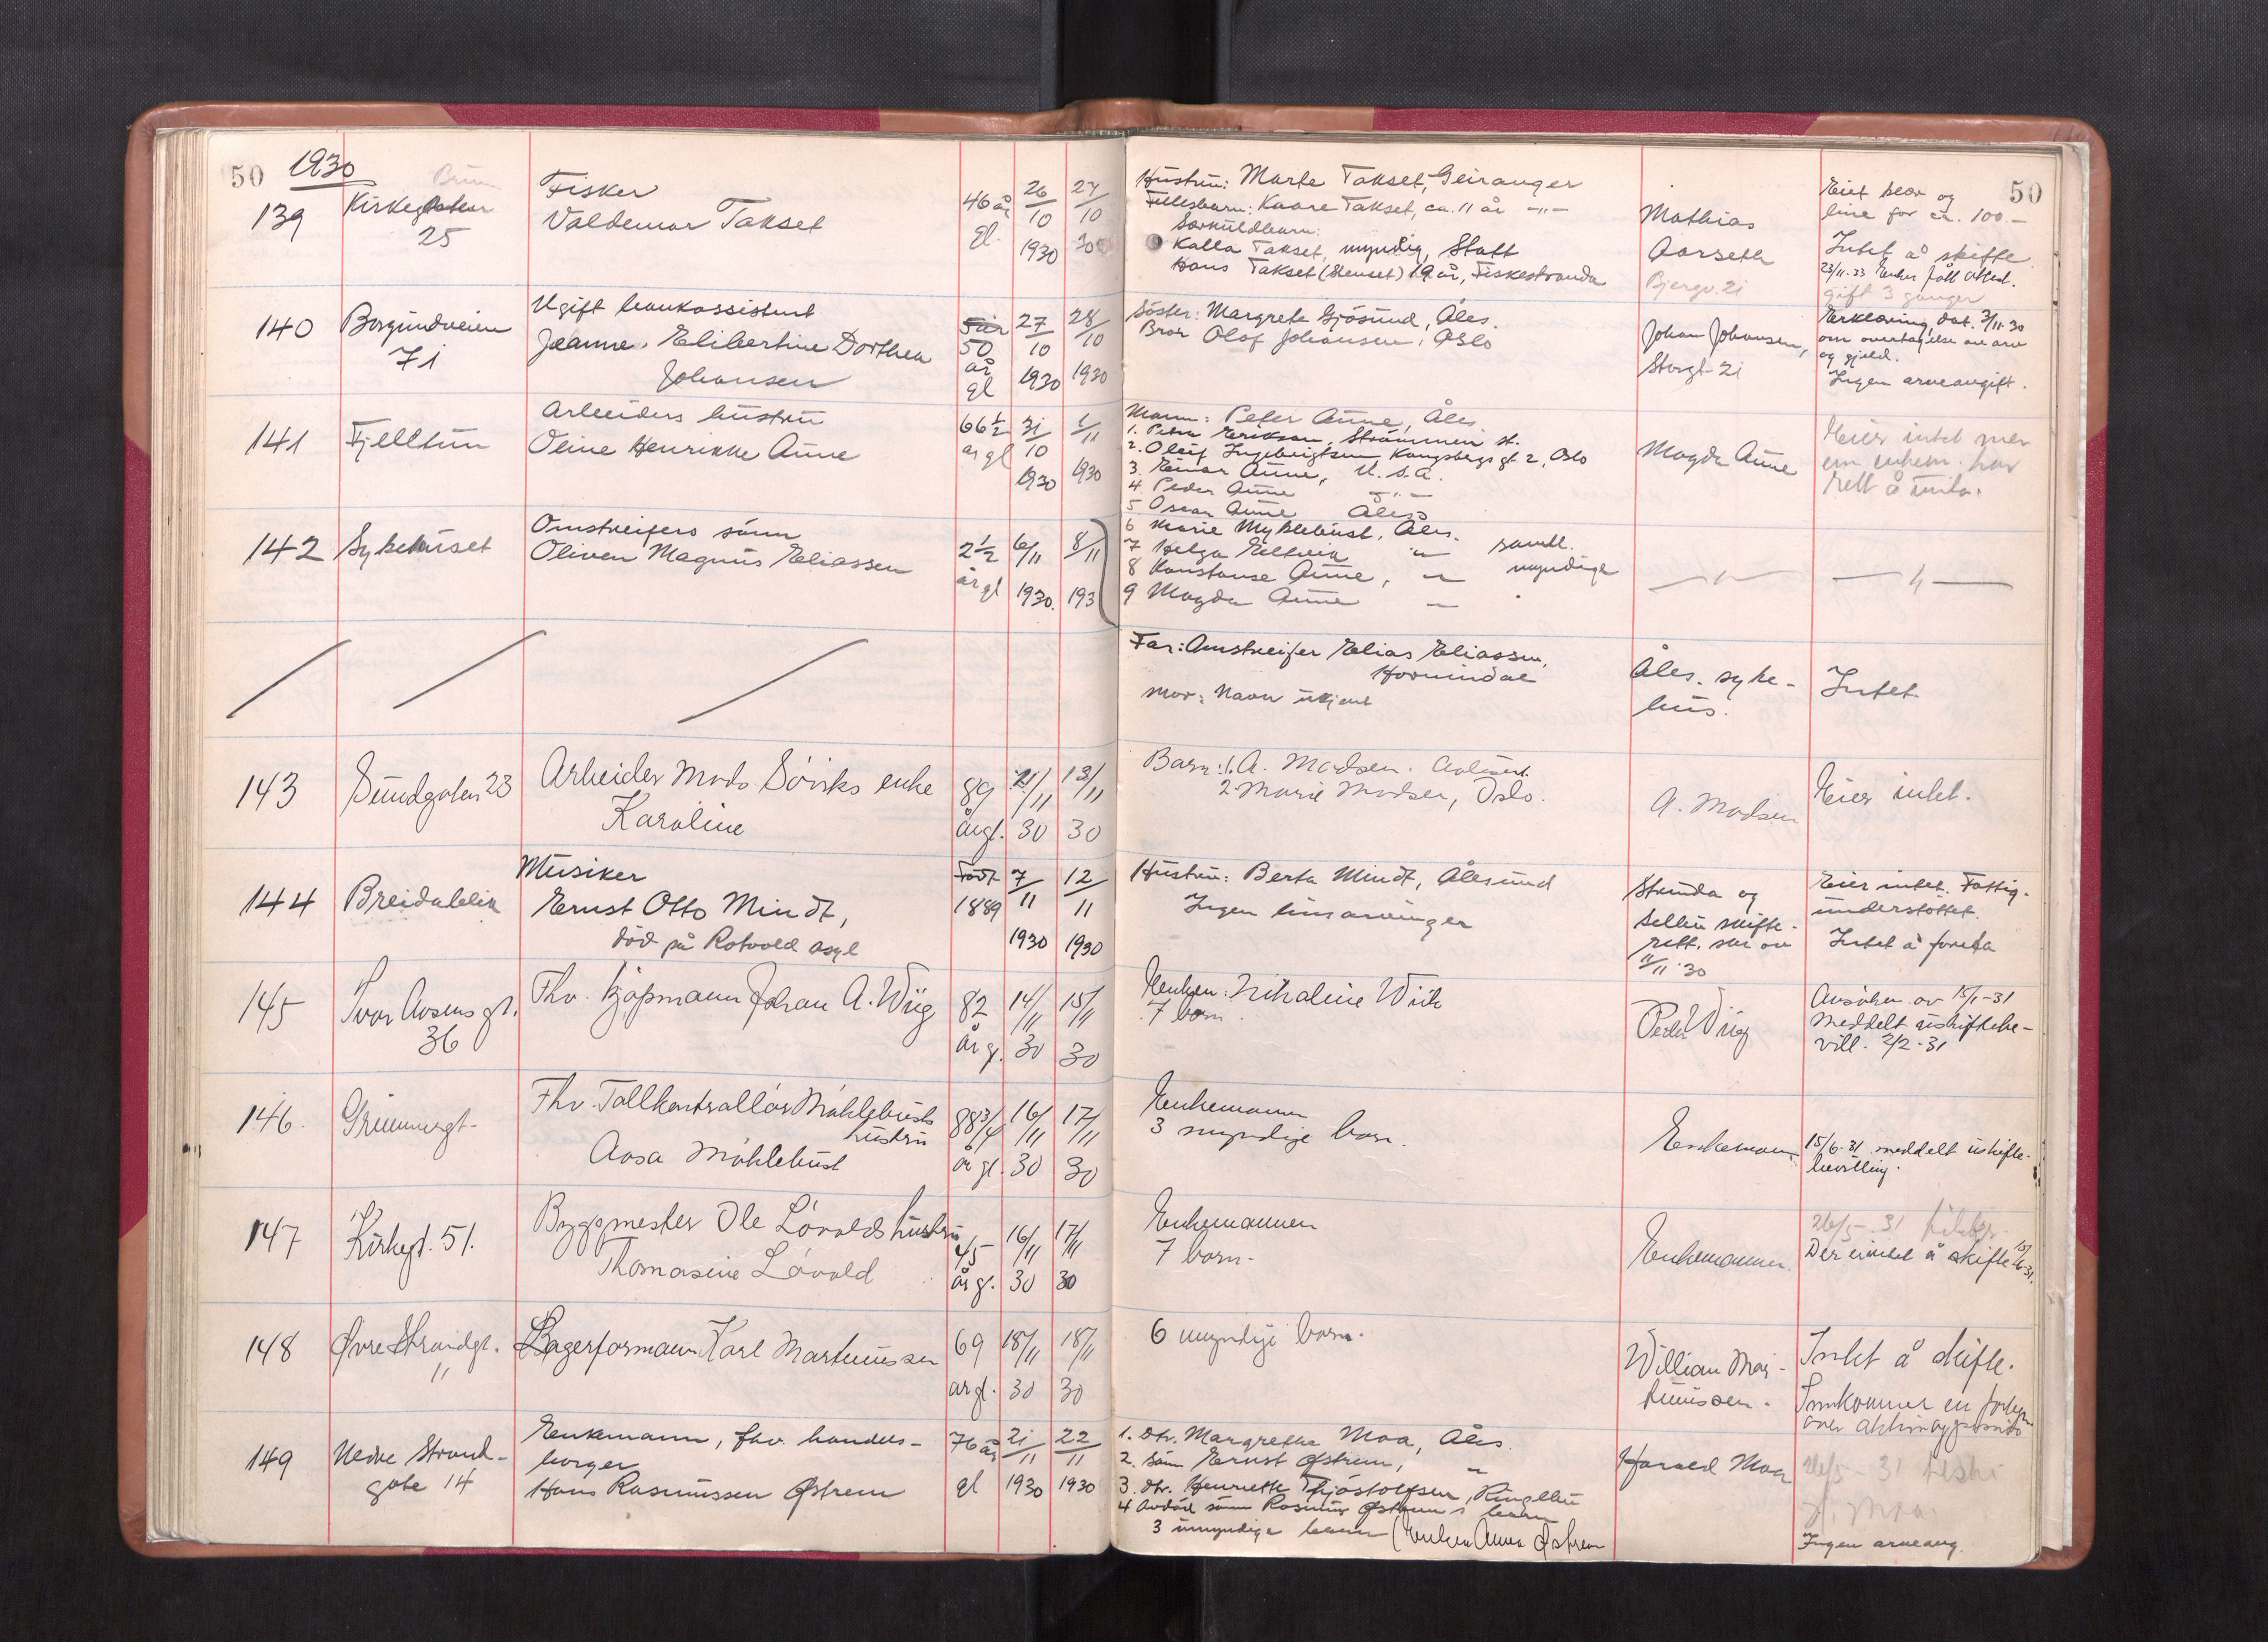 50 1930 50
139
Kirkegaten
25
Fisker
Valdemar Takset
46 år
gl.
26/10
1930
27/10
30
Hustru: Marte Takset, Geiranger
Fellesbarn: Kaare Takset, ca. 11 år -"-
Særkullbarn:
Kalla Takset, myndig, Statt
Hans Takset (Stenset) 19 år, Fiskestranda
Mathias
Aarseth
Bjergv. 21
Eiet klær og
line for ca. 100.-
Intet å skifte
23/11-33 Enken fått attest.
gift 3 ganger
140
Borgundveien
71
Ugift bankassistent
Jeanne Elibertine Dorthea
Johansen
50
år
gl
27/10
1930
28/10
1930
Søster: Margrete Gjøsund, Åles.
Bror Olaf Johansen, Oslo
Johan Johansen,
Storgt. 21
Erklæring, dat. 3/11-30
om overtagelse av arv
og gjeld.
Ingen arveavgift.
141
Fjelltun
Arbeiders hustru
Oline Henrikke Aune
66 1/2
år gl
31/10
1930
1/11
1930
Mann: Peter Aune, Åles
1. Petra Eriksen, Strømmen st.
2. Oleif Ingebrigtsen Kongsbergsgt. 2, Oslo
3. Einar Aune, U.S.A.
4. Peder Aune -"-
5 Oscar Aune Åles
6 Marie Myklebust, Åles.
7 Helga Eltvik " samtl.
8 Konstanse Aune, " myndige
9 Magda Aune -
Magda Aune
Eier intet men
enkem. har
rett å
142
Sykehuset
Omstreifers sønn
Oliven Magnus Eliassen
2 1/2
år gl
6/11
1930.
8/11
193
- " -
- " -
Far: Omstreifer Elias Eliassen,
Hornindal
mor: Navn ukjent
Åles. syke-
hus.
Intet.
143
Sundgaten 23
Arbeider Mads Søviks enke
Karoline
89
årgl.
11/11
30
13/11
30
Barn: 1. A. Madsen.
2. Marie Madsen, Oslo.
A. Madsen
Eier intet.
144
Breidablik
Musiker
Ernst Otto Mindt,
død på Rotvold asyl
Født
1889
7/11
1930
12/11
1930
Hustru: Berta Mindt, Ålesund
Ingen livsarvinger
Strinda og
Selbu skifte-
rett, skr. av
11/11 30
Eier intet. Fattig-
understøttet.
Intet å foreta
145
Ivar Aasens gt.
36
Fhv. kjøpmann Johan A. Wiig
82
år g.
14/11
30
15/11
30
Enken: Nikoline Wiik
7 barn.
Peder Wiig
Ansøken av 15/1-31
meddelt uskiftebe-
vill. 2/2-31
146.
Grimmergt.
Fhv. Tollkontrollør Møklebusts
hustru
Aasa Møklebust
88 3/4
år gl.
16/11
30
17/11
30
Enkemann
3 myndige barn.
Enkemann
15/6-31 meddelt uskifte-
bevilling.
147
Kirkegt. 51.
Byggmester Ole Løvolds hustru
Thomasine Løvold
45
år g.
16/11
30
17/11
30
Enkemannen
7 barn.
Enkemannen.
26/5-31
Der er intet å skifte 15/6-31.
148
Øvre Strandgt.
11
Lagerformann Karl Martinussen
69
år gl.
18/11
30
18/11
30
6 myndige barn.
William Mar-
tinussen.
Intet å skifte.
Innkommer en
over
149
Nedre Strand-
gate 14
Enkemann, fhv. handels-
borger
Hans Rasmussen Østrem
76 år
gl
21/11
1930
22/11
1930
1. Dtr. Margrethe Moa, Åles
2. Sønn Ernst Østrem, "
3. Dtr. Henriette Tjøstolfsen, Ringebu
4 Avdød sønn Rasmus Østrems barn
3 umyndige barn (Enken Anna Østrem
Harald Moa
26/5-31
H. Moa.
Ingen arveavg.